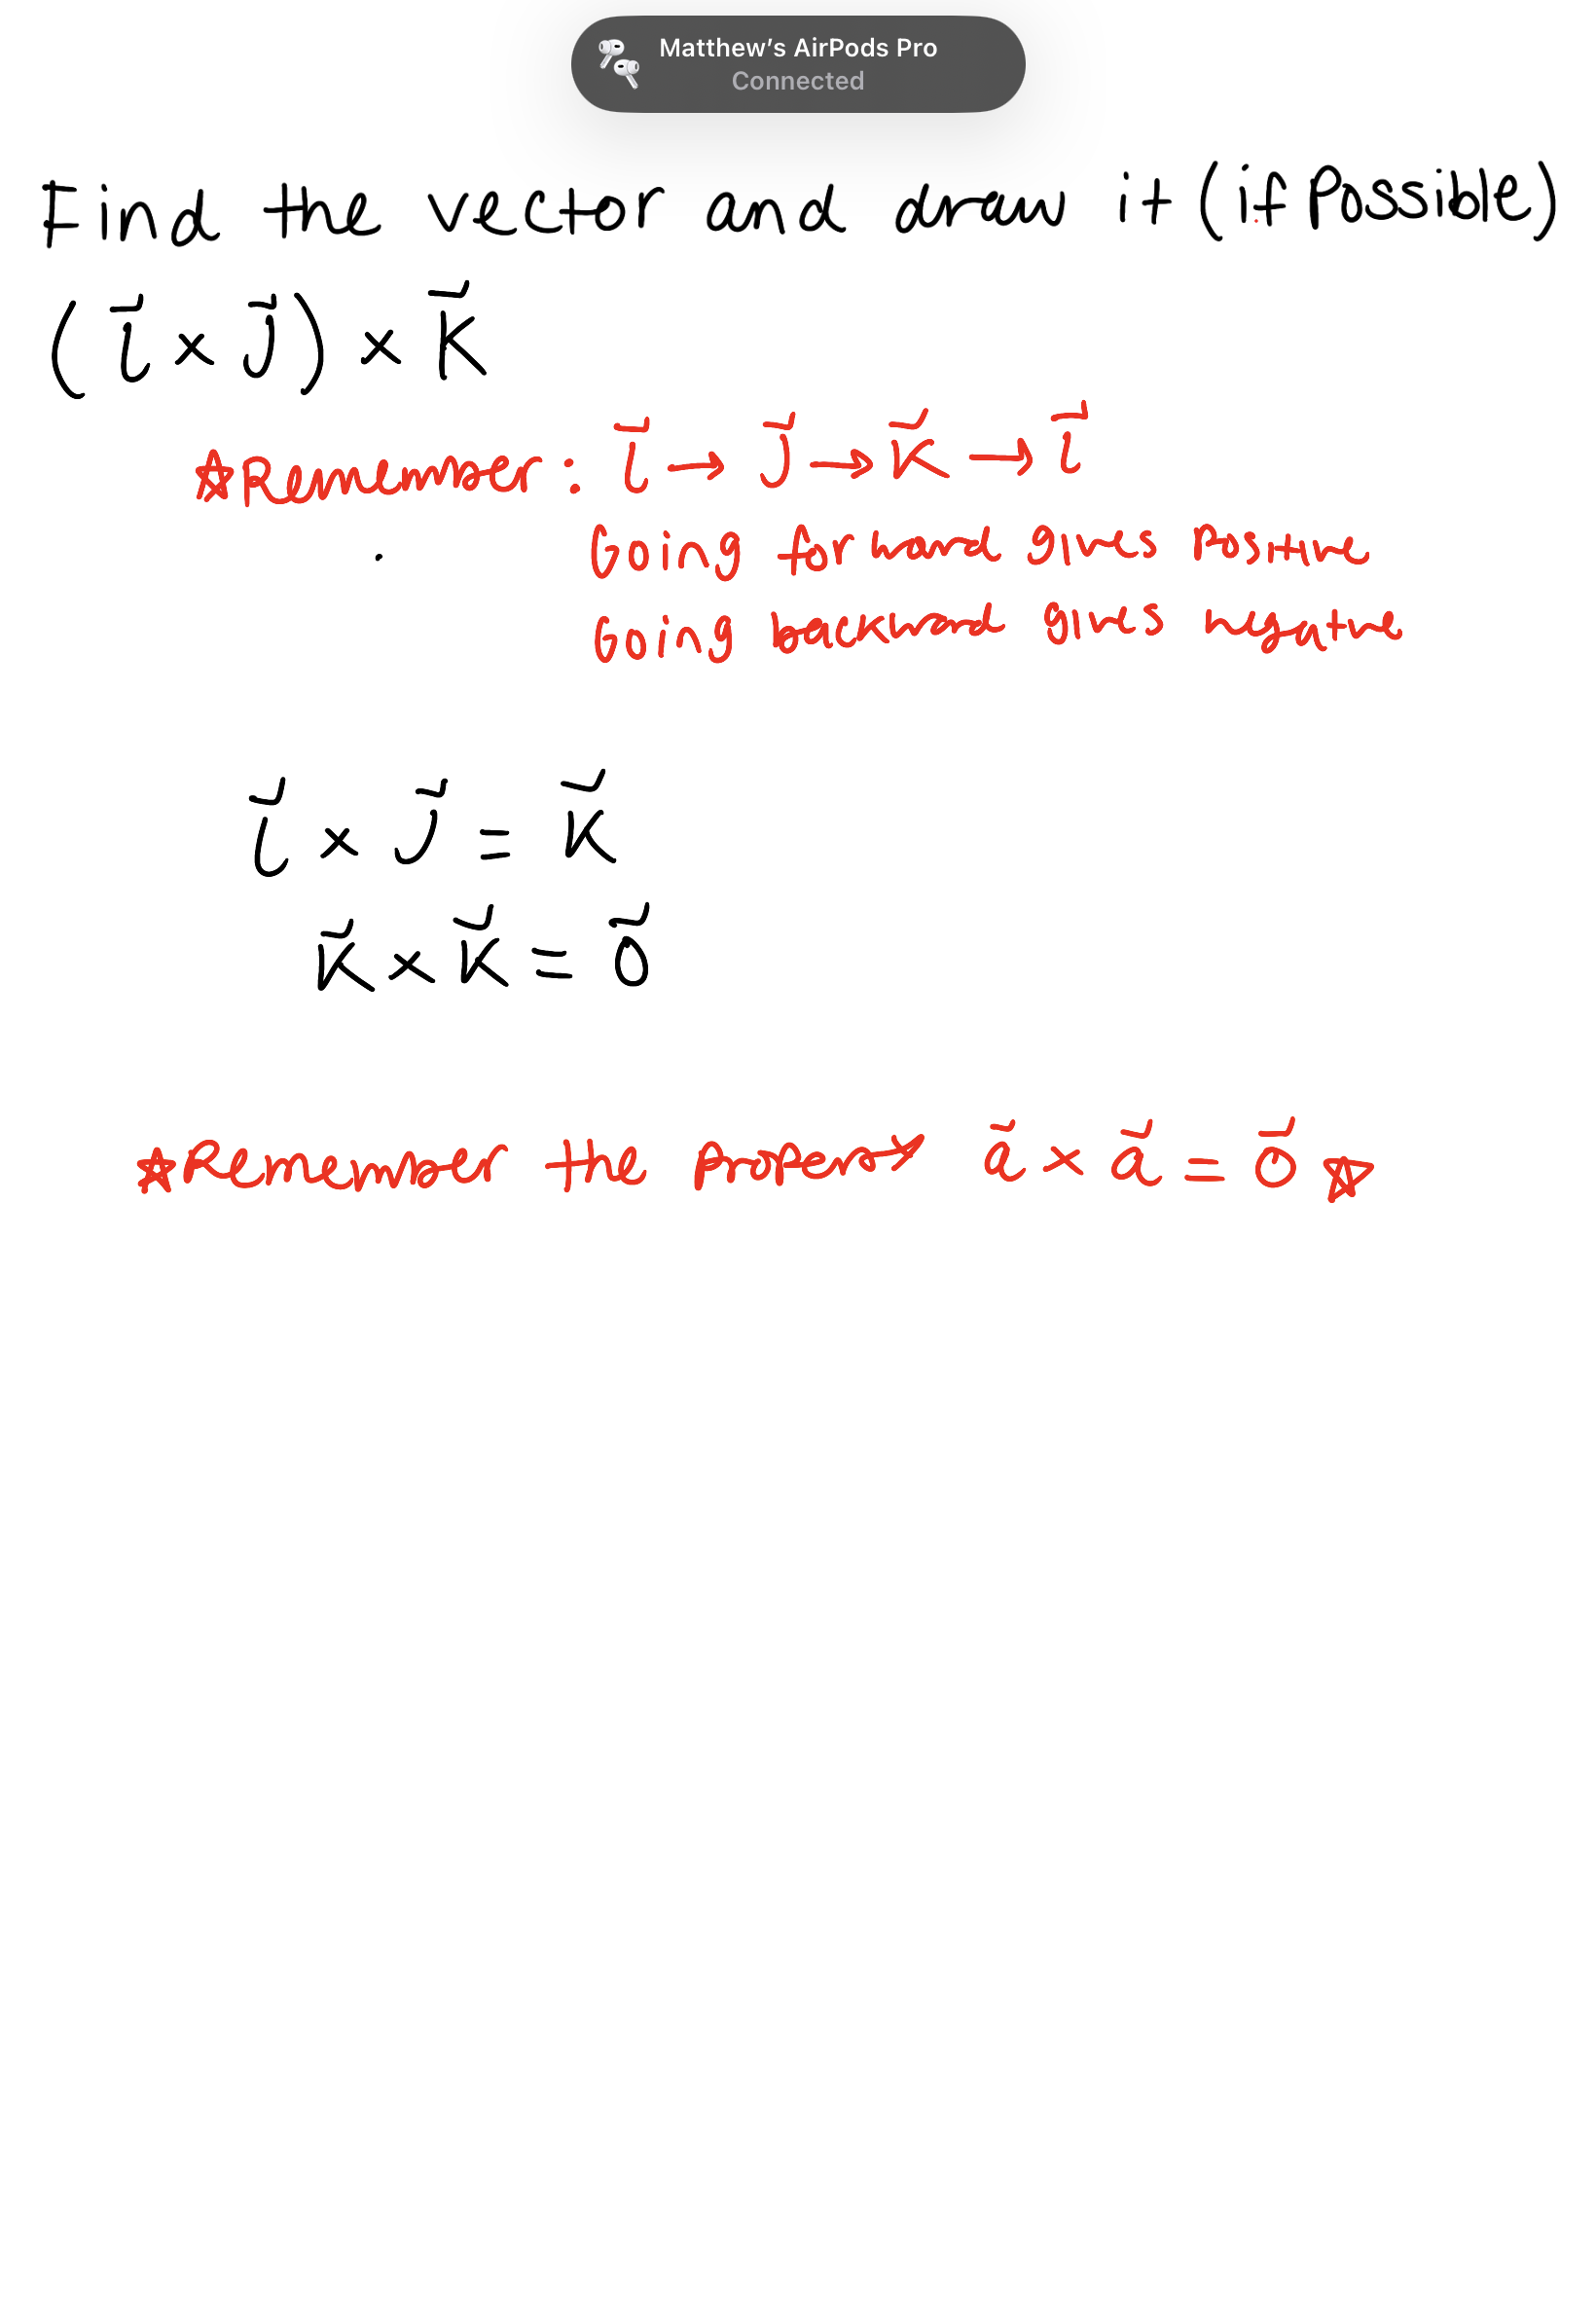 Matthew's AirPods Pro
Connected
Find the vector and draw it (if Possible)
(i⃗ × j⃗) × k⃗
☆Remember: i⃗ → j⃗ → k⃗ → i⃗
Going forward gives Positive
Going backward gives negative
i⃗ × j⃗ = k⃗
k⃗ × k⃗ = 0⃗
☆Remember the property a⃗ × a⃗ = 0⃗ ☆